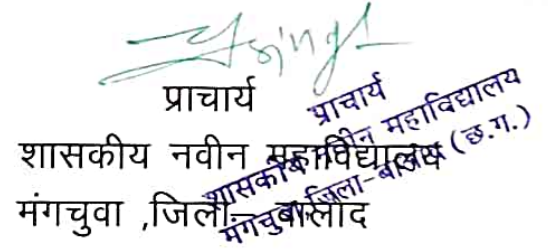 प्राचार्य
शासकीय नवीन महाविद्यालय
मंगचुवा ,जिला– बालोद
प्राचार्य
शासकीय नवीन महाविद्यालय
मंगचुवा जिला-बालोद (छ.ग.)